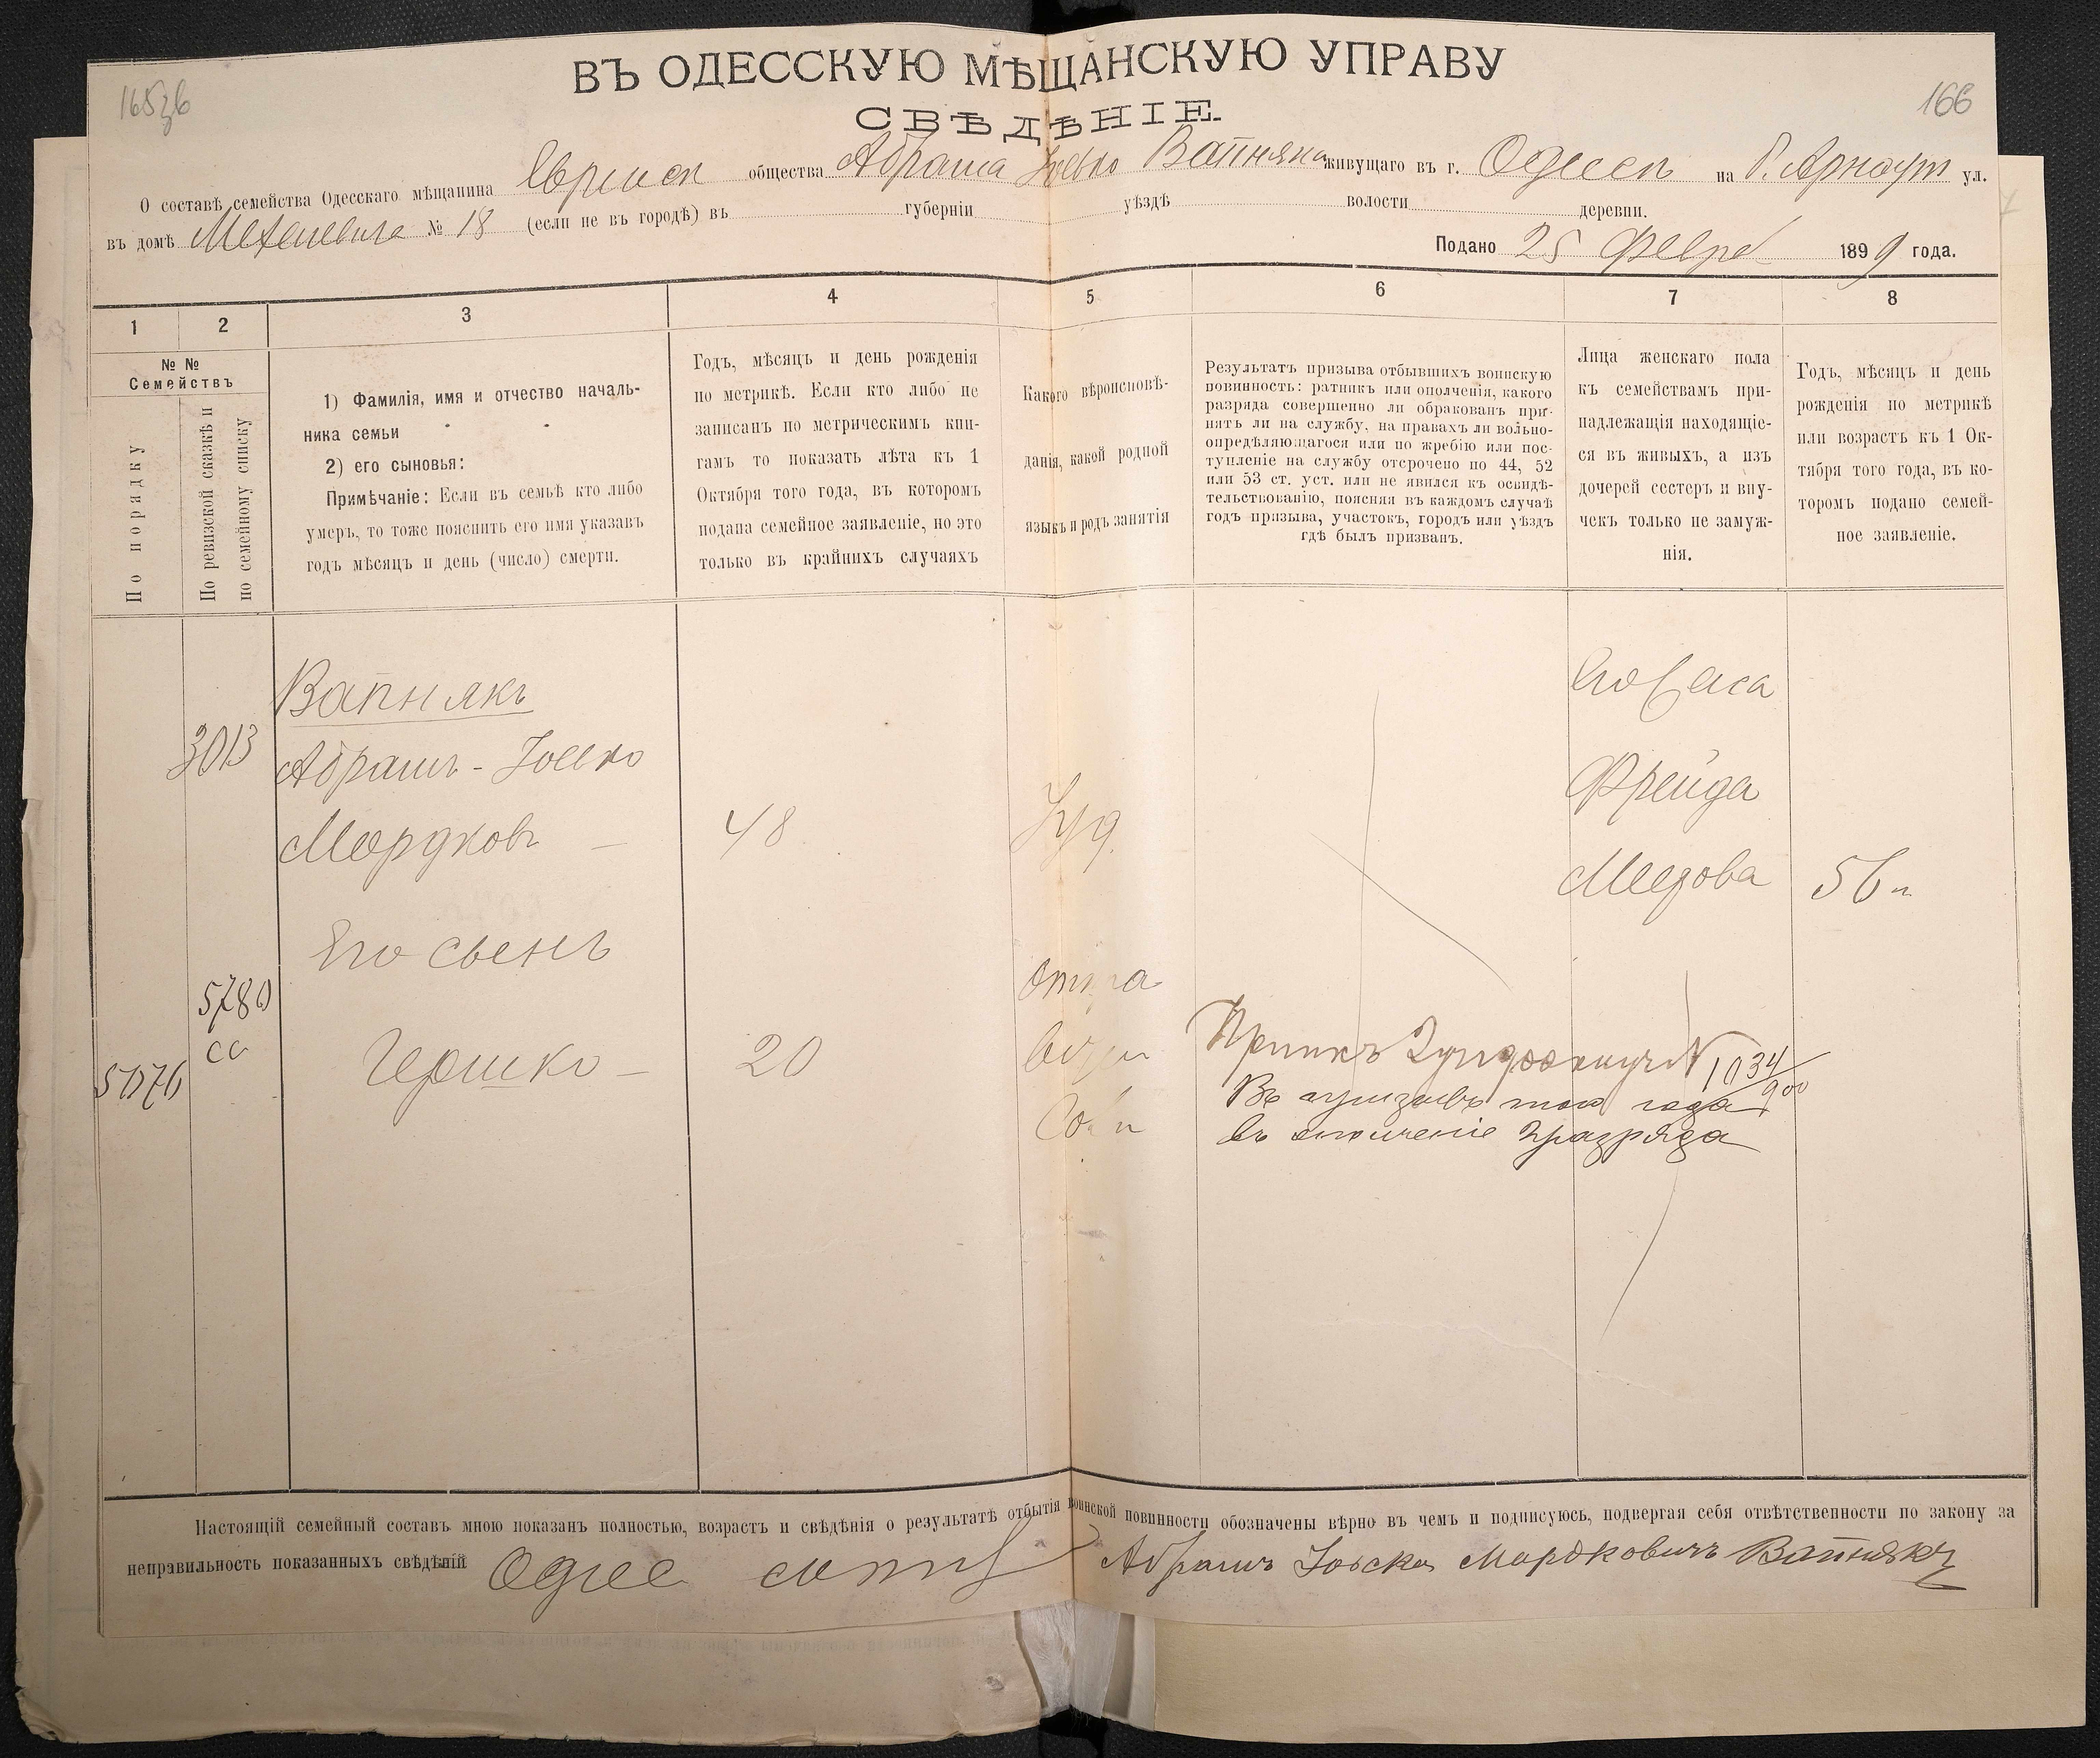 165 зв
166
ВЪ ОДЕССКУЮ МѢЩАНСКУЮ УПРАВУ
СВѢДѢНІЕ
О составѣ семейства Одесскаго мѣщанина Еврейск общества Абрама Іосько Вапняка живущаго въ г. Одессѣ на Б. Арноут ул.
въ домѣ № 18 (если не въ городѣ) въ губерніи уѣздѣ волости деревни.
Подано 25 Февра 1899 года.
1 2 3 4 5 6 7 8
№ №
Семействъ
По порядку
По ревизской сказкѣ и
по семейному списку
1) Фамилія, имя и отчество началь-
ника семьи
2) его сыновья:
Примѣчаніе: Если въ семьѣ кто либо
умеръ, то тоже пояснить его имя указавъ
годъ мѣсяцъ и день (число) смерти.
Годъ, мѣсяцъ и день рожденія
по метрикѣ. Если кто либо не
записанъ по метрическимъ кни-
гамъ то показать лѣта къ 1
Октября того года, въ которомъ
подана семейное заявленіе, но это
только въ крайнихъ случаяхъ
Какого вѣроисповѣ-
данія, какой родной
языкъ и родъ занятія
Результатъ призыва отбывшихъ воинскую
повинность: ратникъ или ополченія, какого
разряда совершенно ли обракованъ при-
нятъ ли на службу, на правахъ ли вольно-
опредѣляющагося или по жребію или пос-
тупленіе на службу отсрочено по 44, 52
или 53 ст. уст. или не явился къ освидѣ-
тельствованію, поясняя въ каждомъ случаѣ
годъ призыва, участокъ, городъ или уѣздъ
гдѣ былъ призванъ.
Лица женскаго пола
къ семействамъ при-
надлежащія находящіе-
ся въ живыхъ, а изъ
дочерей сестеръ и вну-
чекъ только не замуж-
нія.
Годъ, мѣсяцъ и день
рожденія по метрикѣ
или возрастъ къ 1 Ок-
тября того года, въ ко-
торомъ подано семей-
ное заявленіе.
3013
Вапнякъ
Абрамъ-Іосько
Мордковъ — 48
Іуд.
Его
Фрейда
Меерова 56 л
Его сынъ
5780
сс
51176
Гершко — 20
№ 1034/900
Въ призывъ того года
въ ополченіе 2 разряда
Настоящій семейный составъ мною показанъ полностью, возрастъ и свѣдѣнія о результатѣ отбытія воинской повинности обозначены вѣрно въ чемъ и подписуюсь, подвергая себя отвѣтственности по закону за
неправильность показанныхъ свѣдѣній Абрамъ Іоська Мордковичъ Вапнякъ